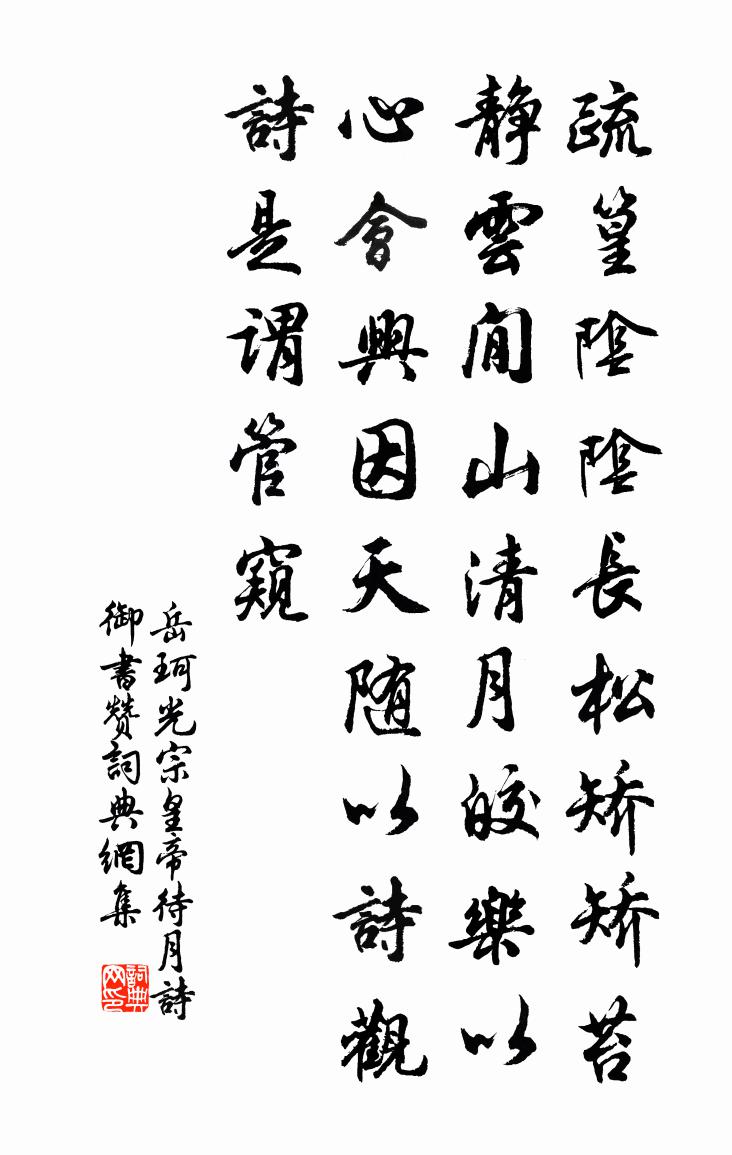 疏篁陰陰長松矯矯苔
靜雲閒山清月皎樂以
心會興因天随以詩觀
詩是谓管窺
岳珂光宗皇帝待月詩
御書贊詞典網集
詞典网印